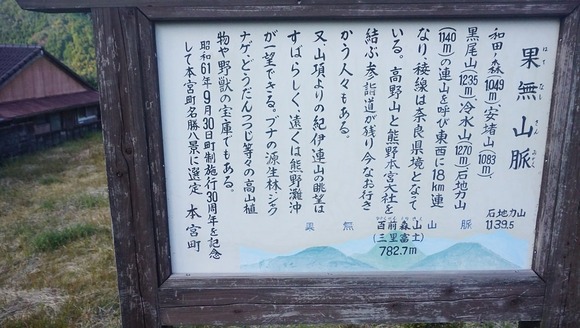 果無山脈
はて なし さん みゃく
和田ヶ森(1049m)、安堵山(1083m)、
黒尾山(1235m)、冷水山(1270m)、石地力山
(1140m)の連山を呼び東西に18km連
なり、稜線は奈良県境となって
いる。高野山と熊野本宮大社を
結ぶ、参詣道が残り今なお行き
かう人々もある。
又、山頂よりの紀伊連山の眺望は
すばらしく、遠くは熊野灘沖
が一望できる。ブナの源生林、シャク
ナゲ、どうだんつつじ等々の高山植
物や野獣の宝庫でもある。
昭和61年9月30日町制施行30周年を記念
して本宮町名勝八景に選定 本宮町
果無山脈
石地力山
1139.5
百前森山
(三里富士)
782.7m